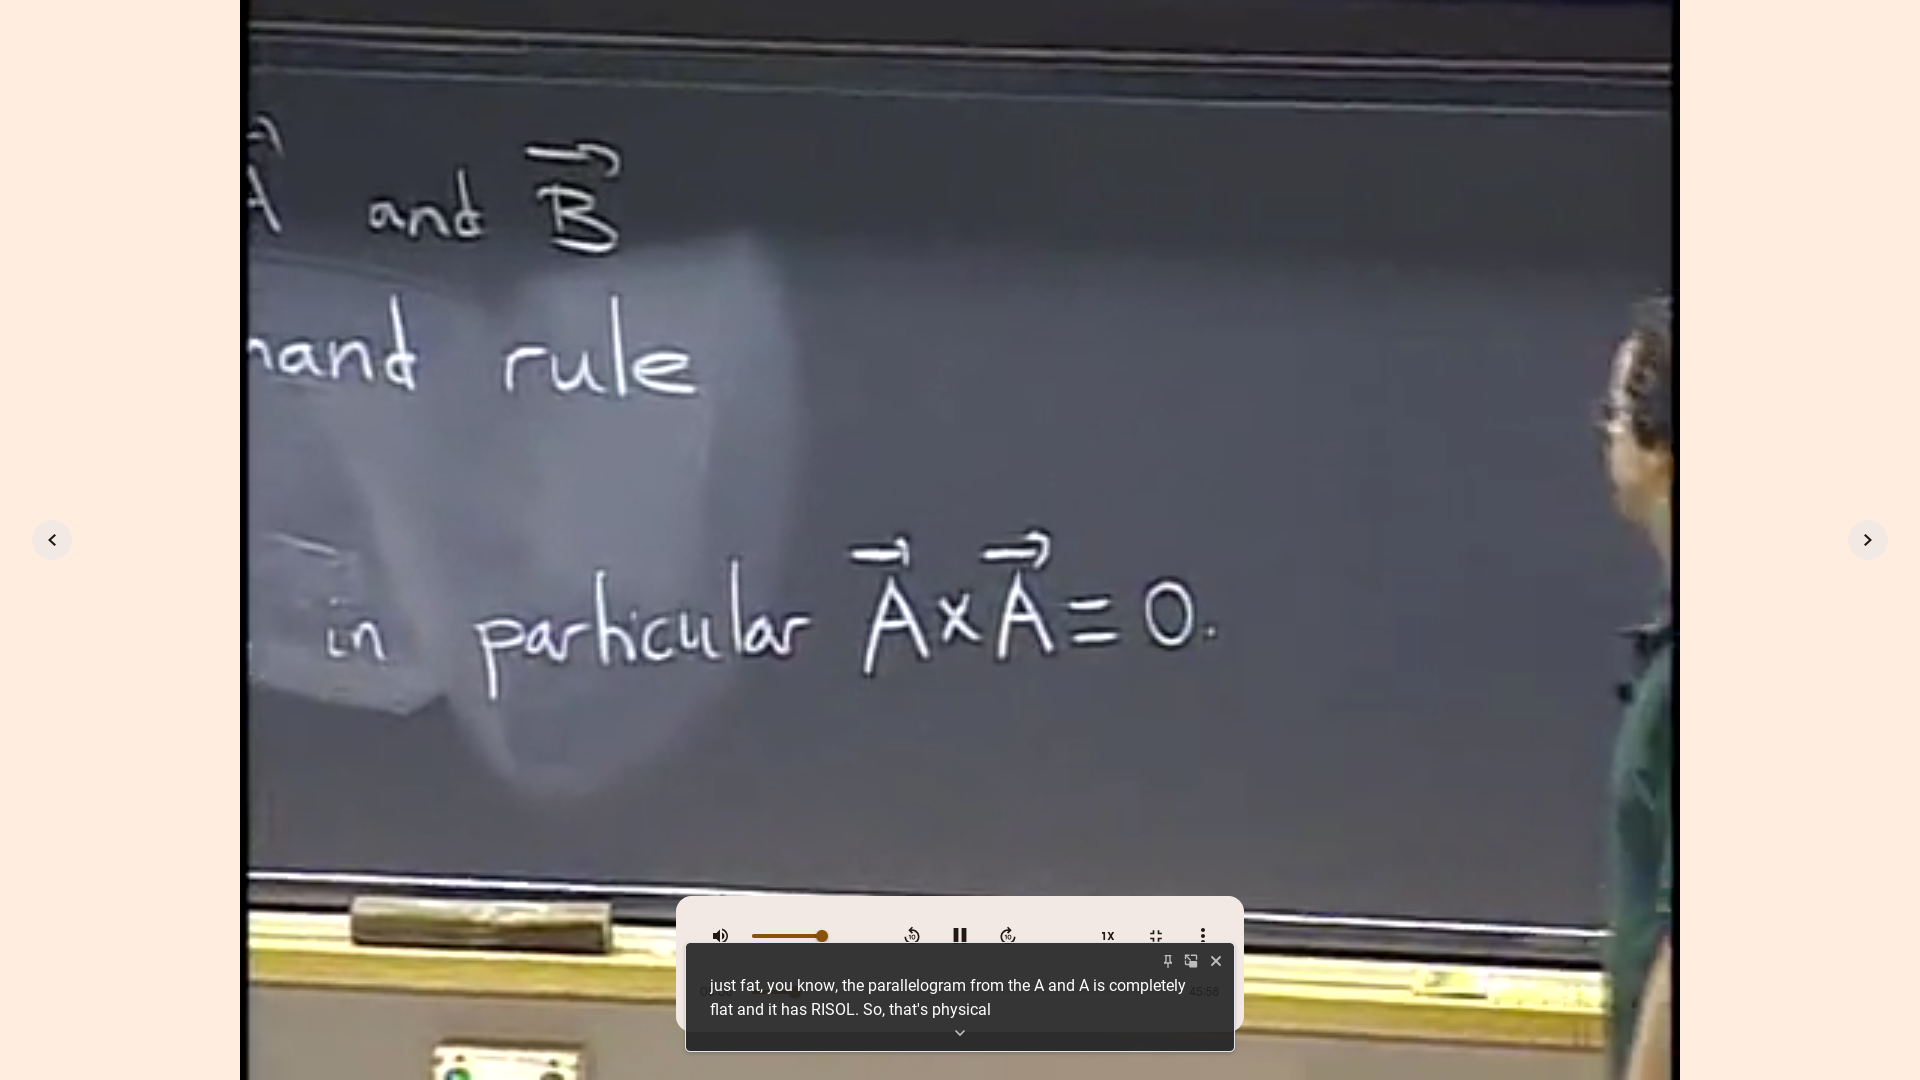 A⃗ and B⃗
hand rule
in particular A⃗×A⃗=0.
1X
just fat, you know, the parallelogram from the A and A is completely
flat and it has RISOL. So, that's physical